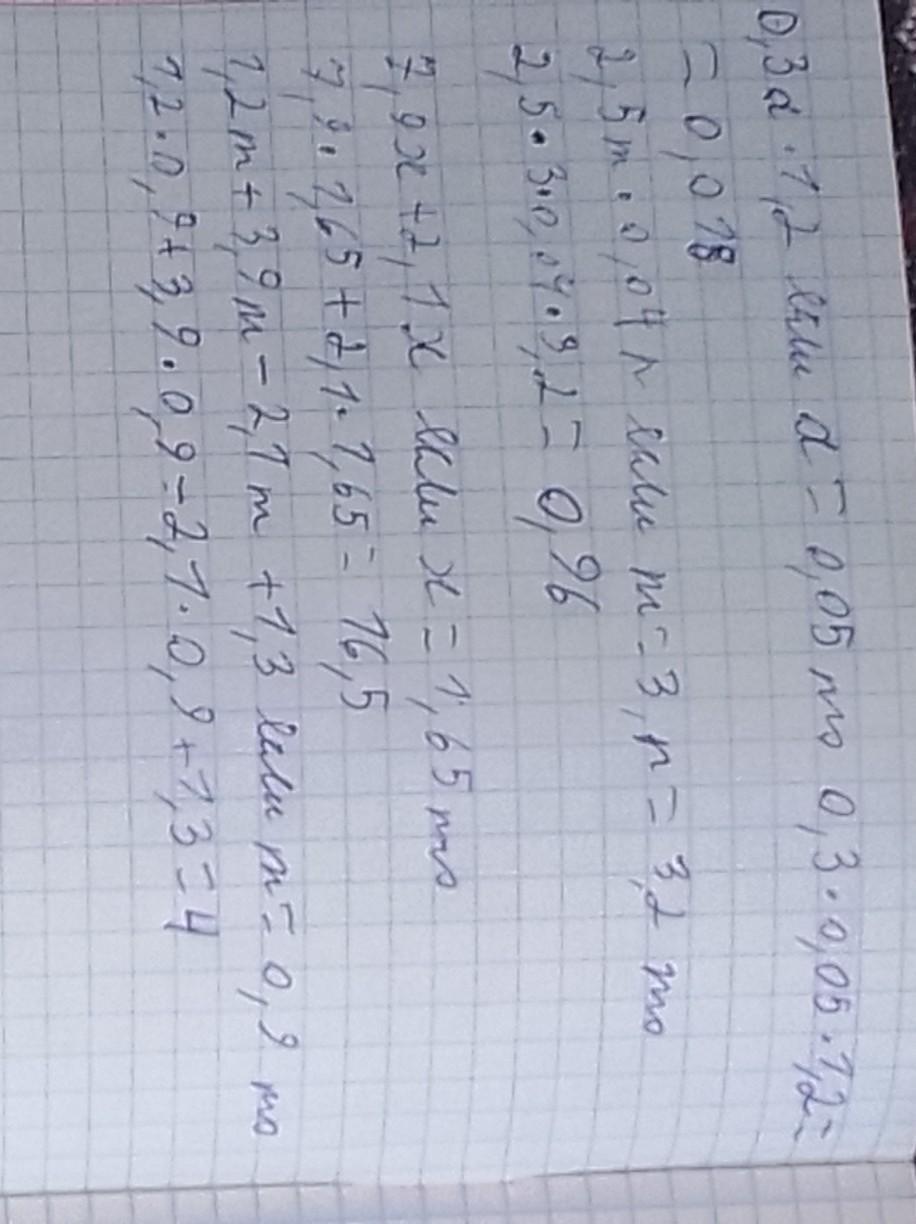 0,3a · 1,2 если a = 0,05 то 0,3 · 0,05 · 1,2 =
= 0,018
2,5m · 0,04 n если m = 3, n = 3,2 то
2,5 · 3 · 0,04 · 3,2 = 0,96
7,9x + 2,1x если x = 1,65 то
7,9 · 1,65 + 2,1 · 1,65 = 16,5
1,2m + 3,9m - 2,1m + 1,3 если m = 0,9 то
1,2 · 0,9 + 3,9 · 0,9 - 2,1 · 0,9 + 1,3 = 4